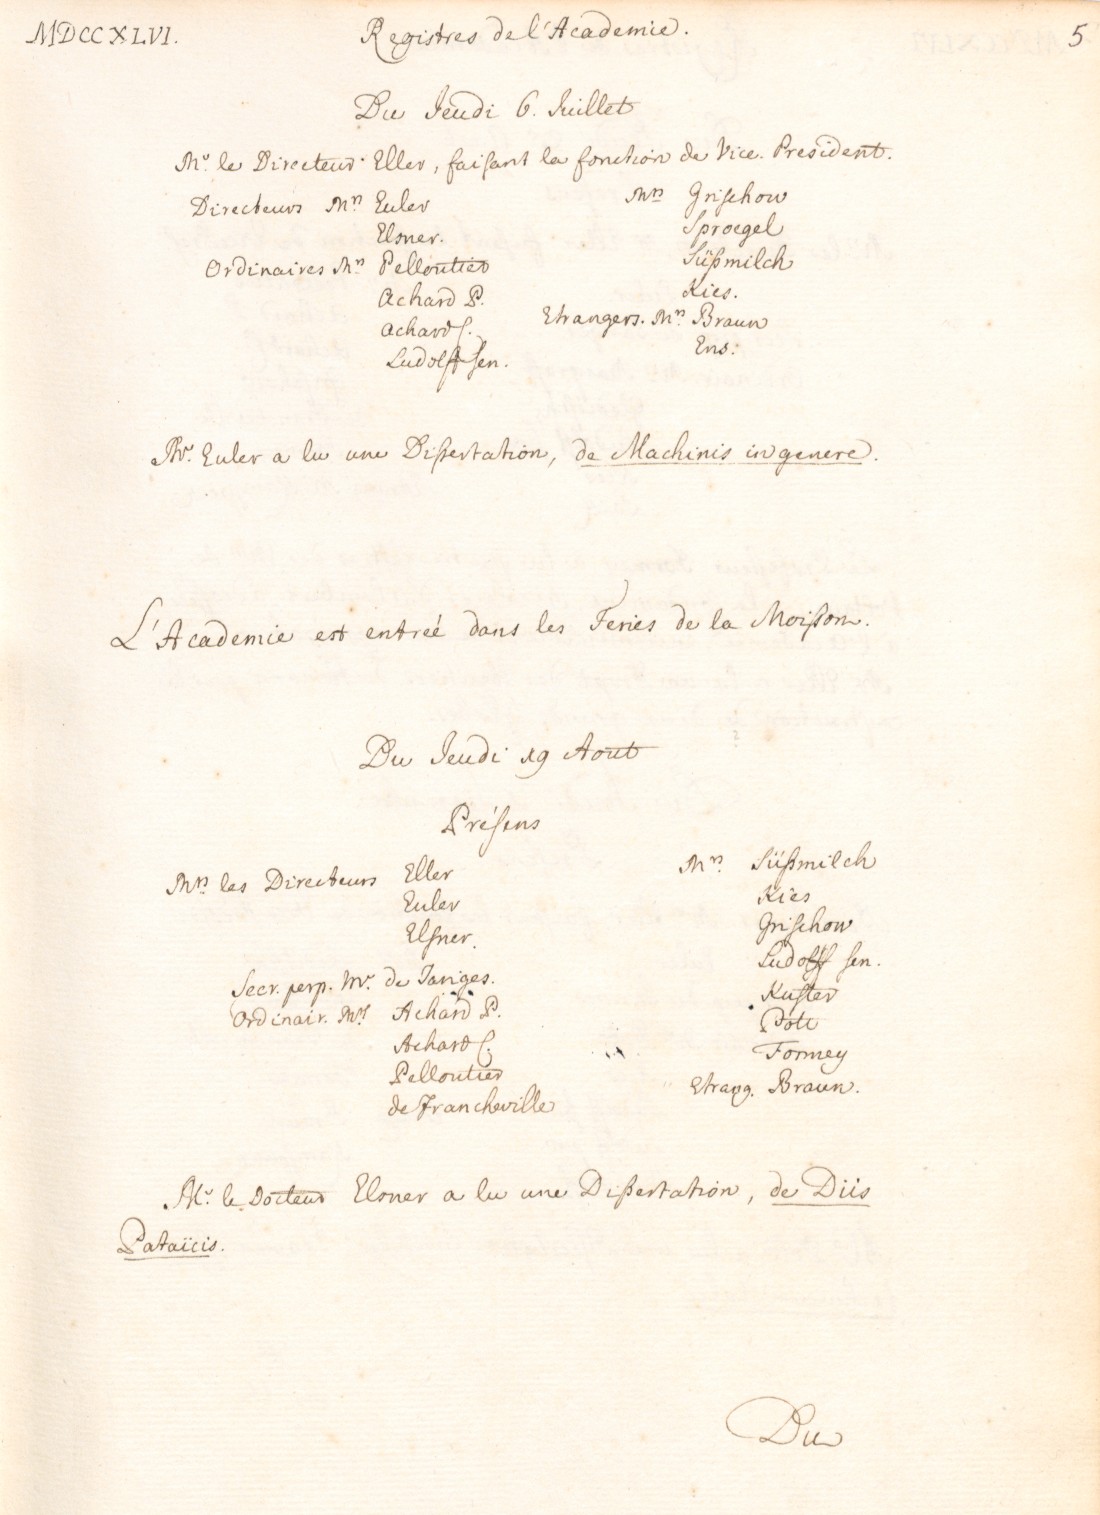 MDCCXLVI.
Registres de l'Academie.
5
Du Jeudi 6. Juillet
Mr. le Directeur Eller, faisant la fonction de Vice. President.
Directeurs Mrs Euler
Elsner.
Ordinaires Mrs Pelloutier
Achard P.
Achard C.
Ludolff sen.
Mrs Grischow
Sproegel
Süßmilch
Kies.
Etrangers. Mrs Braun
Ens.
Mr. Euler a lu une Dissertation, de Machinis in genere.
L'Academie est entreé dans les Feries de la Moisson.
Du Jeudi 19 Aout
Présens
Mrs les Directeurs Eller
Euler
Elsner.
Secr. perp. Mr. de Jariges.
Ordinair. Mrs Achard P.
Achard C.
Pelloutier
de Francheville
Mrs. Süßmilch
Kies
Grischow
Ludolff sen.
Kuster
Pott
Formey
Etrang. Braun.
Mr. le Docteur Elsner a lu une Dissertation, de Diis
Pataïcis.
Du